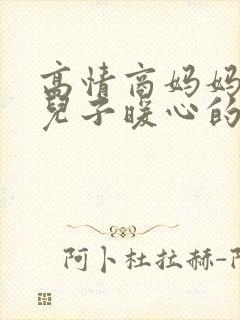 高情商妈妈
兒子暖心的
阿卜杜拉赫-阿